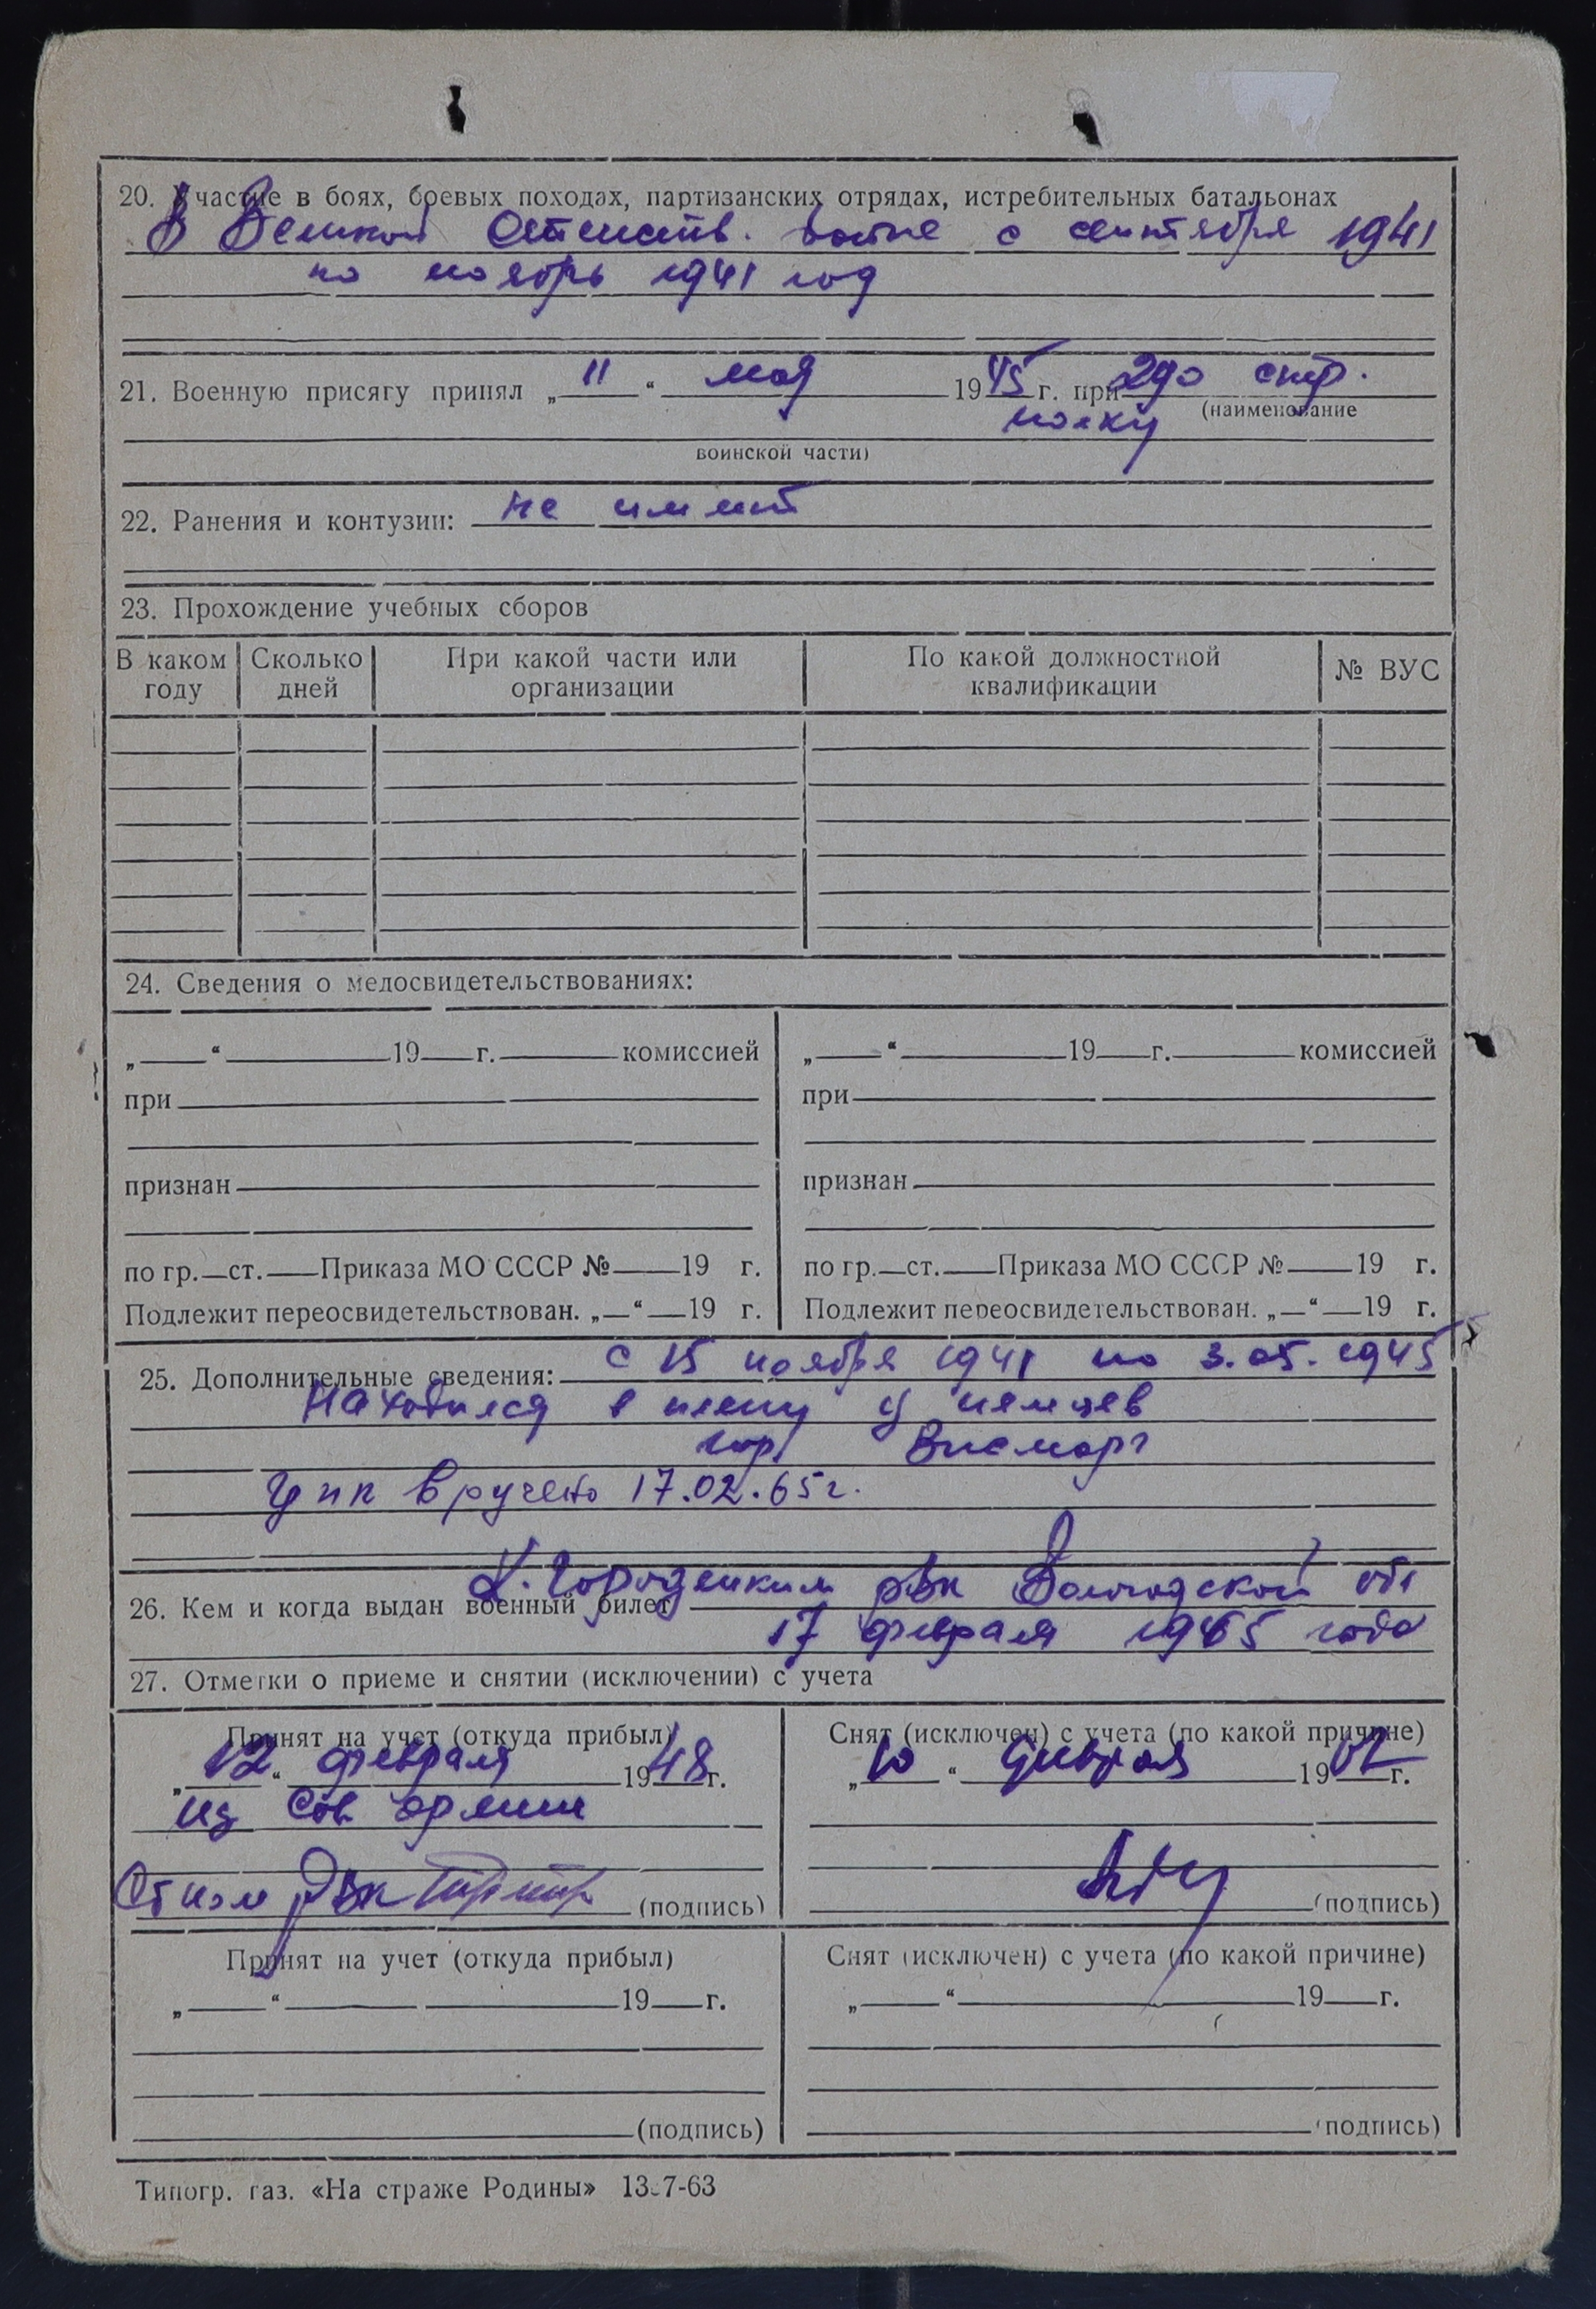 20. Участие в боях, боевых походах, партизанских отрядах, истребительных батальонах
В Великой Отечеств. войне с сентября 1941
по ноябрь 1941 год
21. Военную присягу принял „ 11 “ мая 1945 г. при 290 стр.
(наименование
полку
воинской части)
22. Ранения и контузии: не имеет
23. Прохождение учебных сборов
В каком году | Сколько дней | При какой части или организации | По какой должностной квалификации | № ВУС
24. Сведения о медосвидетельствованиях:
„ “ 19 г. комиссией | „ “ 19 г. комиссией
при | при
признан | признан
по гр. ст. Приказа МО СССР № 19 г. | по гр. ст. Приказа МО СССР № 19 г.
Подлежит переосвидетельствован. „ “ 19 г. | Подлежит переосвидетельствован. „ “ 19 г.
25. Дополнительные сведения: с 15 ноября 1941 по 3.05.1945
Находился в плену у немцев
гор. Висмарг
Упк вручено 17.02.65г.
К. Городецким рвк Вологодской обл
26. Кем и когда выдан военный билет
17 февраля 1965 года
27. Отметки о приеме и снятии (исключении) с учета
Принят на учет (откуда прибыл) | Снят (исключен) с учета (по какой причине)
„ 12 “ февраля 1948 г. | „ 10 “ февраля 19 г.
из Сов армии
(подпись) | (подпись)
Принят на учет (откуда прибыл) | Снят (исключен) с учета (по какой причине)
„ “ 19 г. | „ “ 19 г.
(подпись) | (подпись)
Типогр. газ. «На страже Родины» 7-63